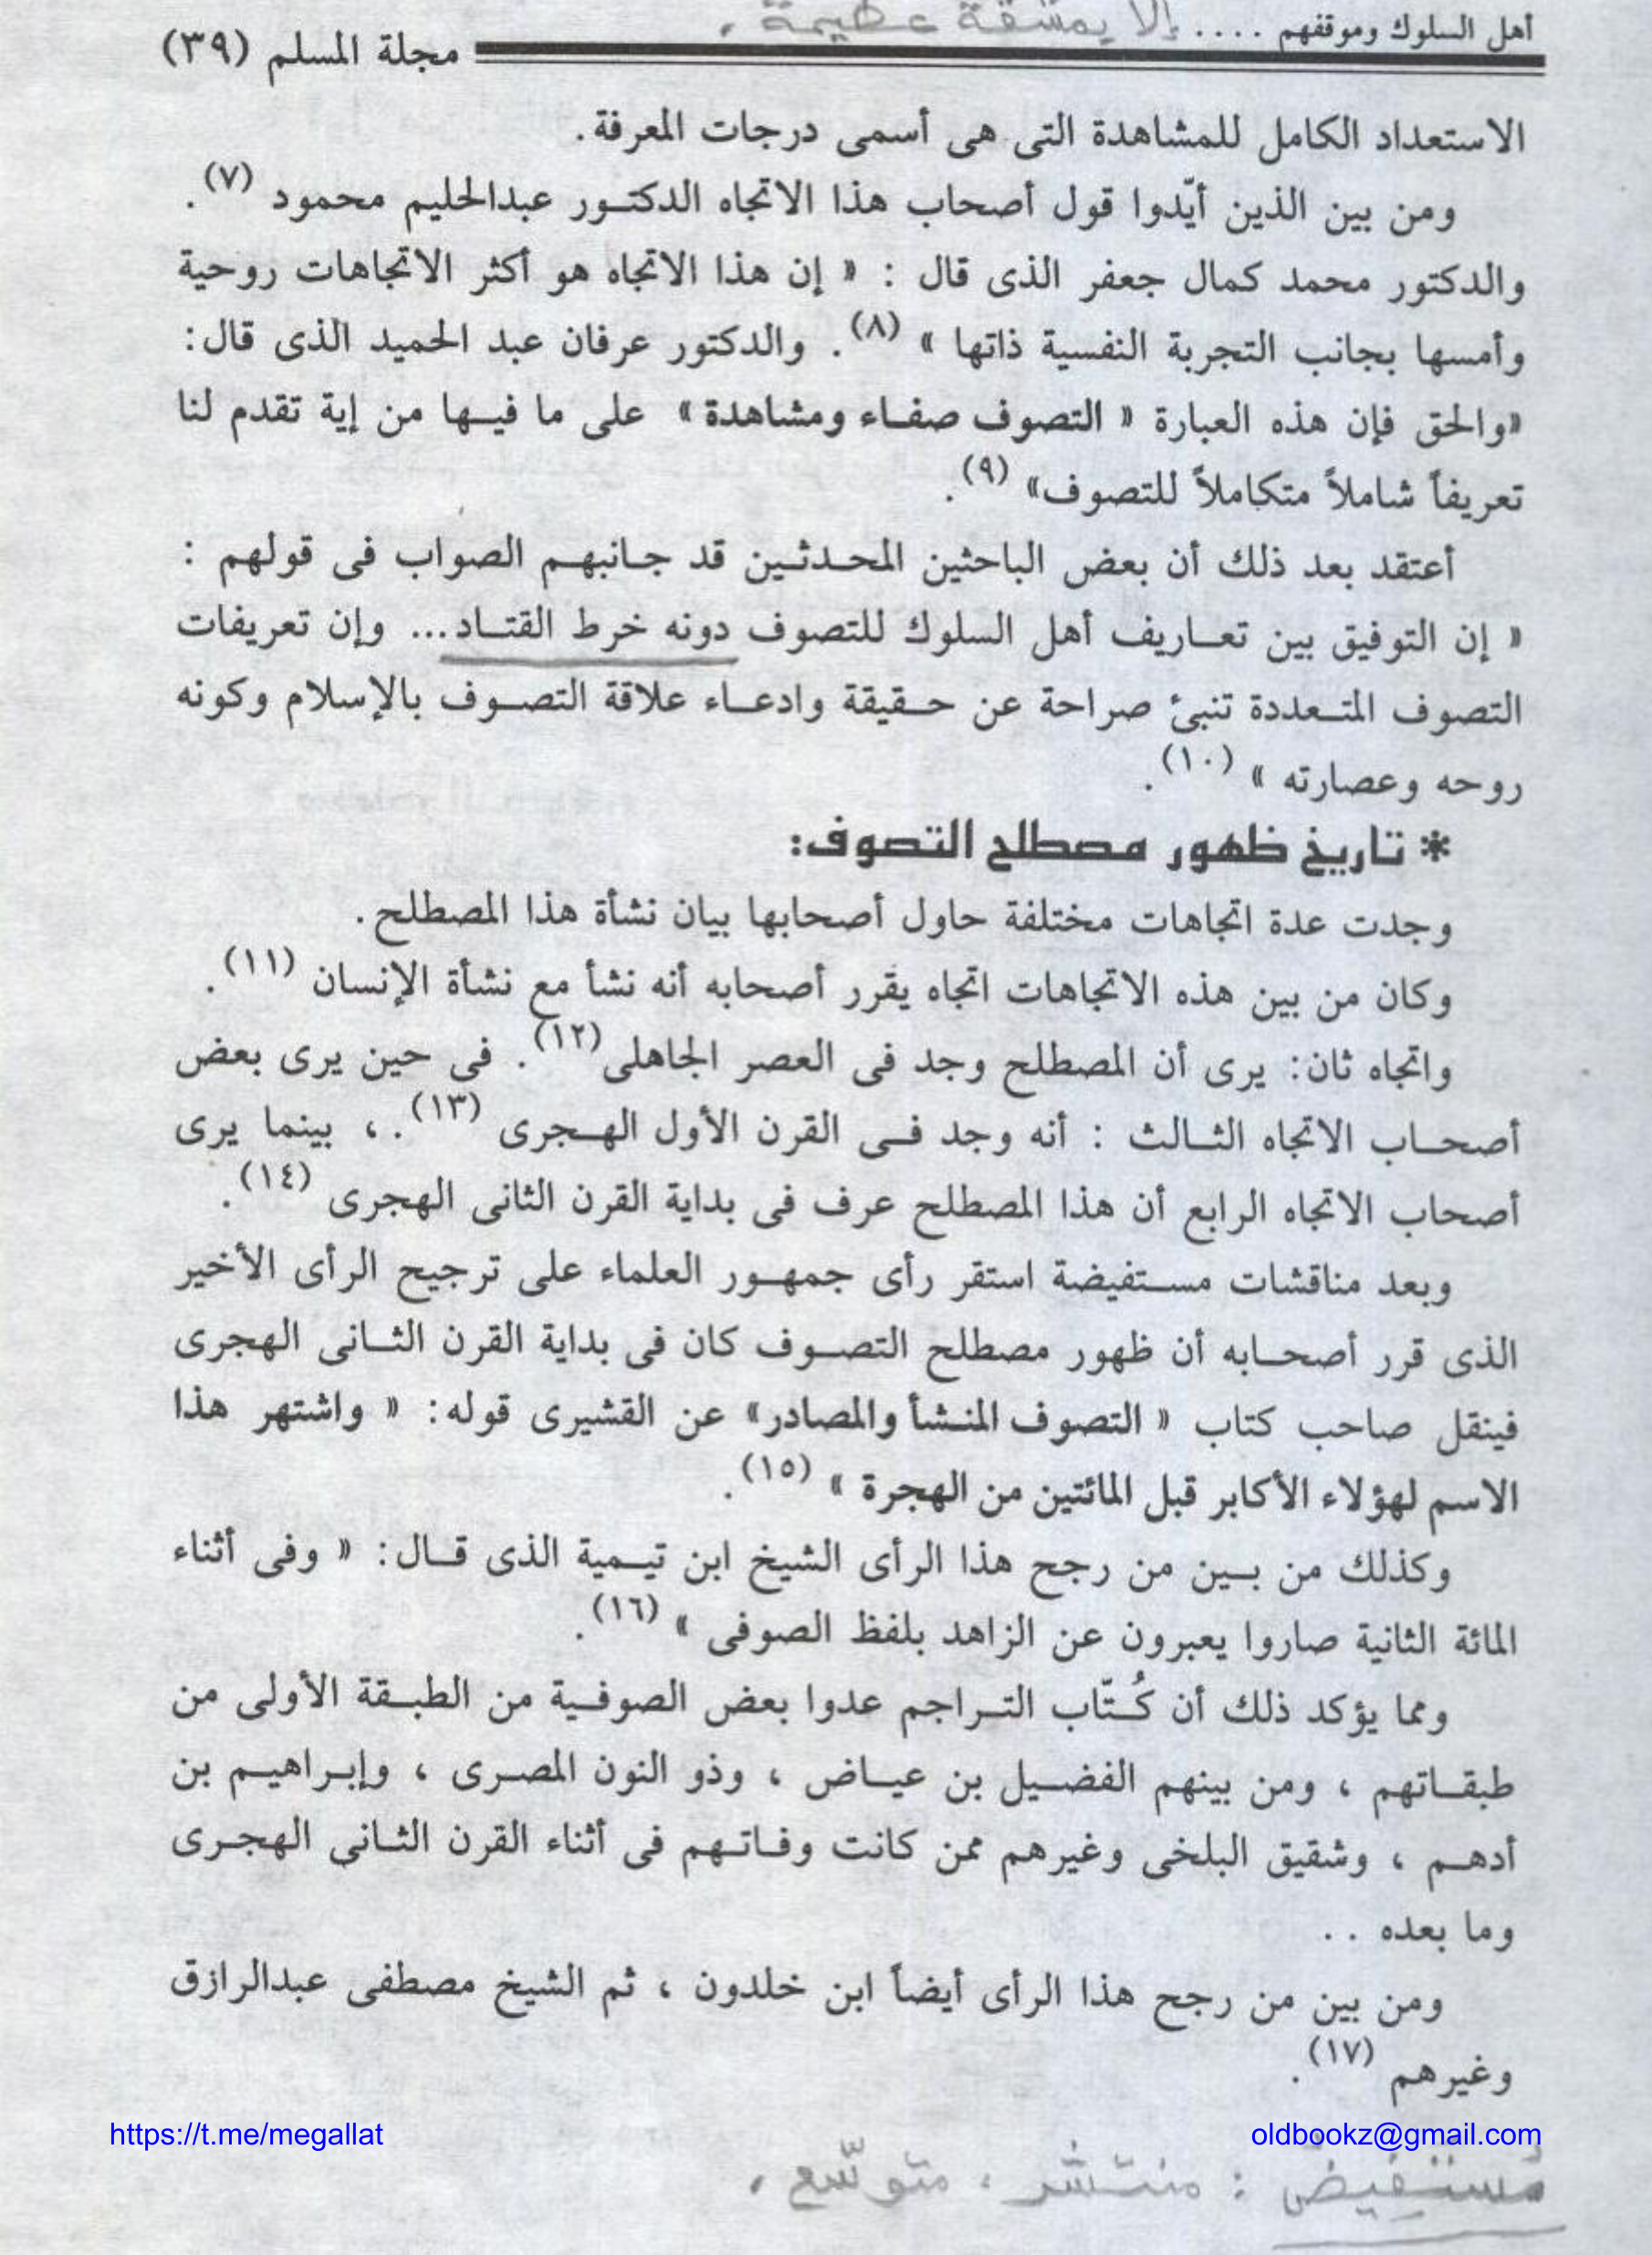 أهل السلوك وموقفهم .... إلا بمشقة عظيمة.
مجلة المسلم (٣٩)
الاستعداد الكامل للمشاهدة التى هى أسمى درجات المعرفة.
ومن بين الذين أيّدوا قول أصحاب هذا الاتجاه الدكتور عبدالحليم محمود (٧).
والدكتور محمد كمال جعفر الذى قال : « إن هذا الاتجاه هو أكثر الاتجاهات روحية
وأمسها بجانب التجربة النفسية ذاتها » (٨). والدكتور عرفان عبد الحميد الذى قال:
«والحق فإن هذه العبارة « التصوف صفاء ومشاهدة» على ما فيها من إية تقدم لنا
تعريفاً شاملاً متكاملاً للتصوف» (٩).
أعتقد بعد ذلك أن بعض الباحثين المحدثين قد جانبهم الصواب فى قولهم :
« إن التوفيق بين تعاريف أهل السلوك للتصوف دونه خرط القتاد... وإن تعريفات
التصوف المتعددة تنبئ صراحة عن حقيقة وادعاء علاقة التصوف بالإسلام وكونه
روحه وعصارته » (١٠).
* تاريخ ظهور مصطلح التصوف:
وجدت عدة اتجاهات مختلفة حاول أصحابها بيان نشأة هذا المصطلح.
وكان من بين هذه الاتجاهات اتجاه يقرر أصحابه أنه نشأ مع نشأة الإنسان (١١).
واتجاه ثان: يرى أن المصطلح وجد فى العصر الجاهلى (١٢). فى حين يرى بعض
أصحاب الاتجاه الثالث : أنه وجد فى القرن الأول الهجرى (١٣). ، بينما يرى
أصحاب الاتجاه الرابع أن هذا المصطلح عرف فى بداية القرن الثانى الهجرى (١٤).
وبعد مناقشات مستفيضة استقر رأى جمهور العلماء على ترجيح الرأى الأخير
الذى قرر أصحابه أن ظهور مصطلح التصوف كان فى بداية القرن الثانى الهجرى
فينقل صاحب كتاب « التصوف المنشأ والمصادر» عن القشيرى قوله: « واشتهر هذا
الاسم لهؤلاء الأكابر قبل المائتين من الهجرة » (١٥).
وكذلك من بين من رجح هذا الرأى الشيخ ابن تيمية الذى قال: « وفى أثناء
المائة الثانية صاروا يعبرون عن الزاهد بلفظ الصوفى » (١٦).
ومما يؤكد ذلك أن كُتّاب التراجم عدوا بعض الصوفية من الطبقة الأولى من
طبقاتهم ، ومن بينهم الفضيل بن عياض ، وذو النون المصرى ، وإبراهيم بن
أدهم ، وشقيق البلخى وغيرهم ممن كانت وفاتهم فى أثناء القرن الثانى الهجرى
وما بعده ..
ومن بين من رجح هذا الرأى أيضاً ابن خلدون ، ثم الشيخ مصطفى عبدالرازق
وغيرهم (١٧).
https://t.me/megallat
oldbookz@gmail.com
مُستفيض : منتشر ، متوسّع .